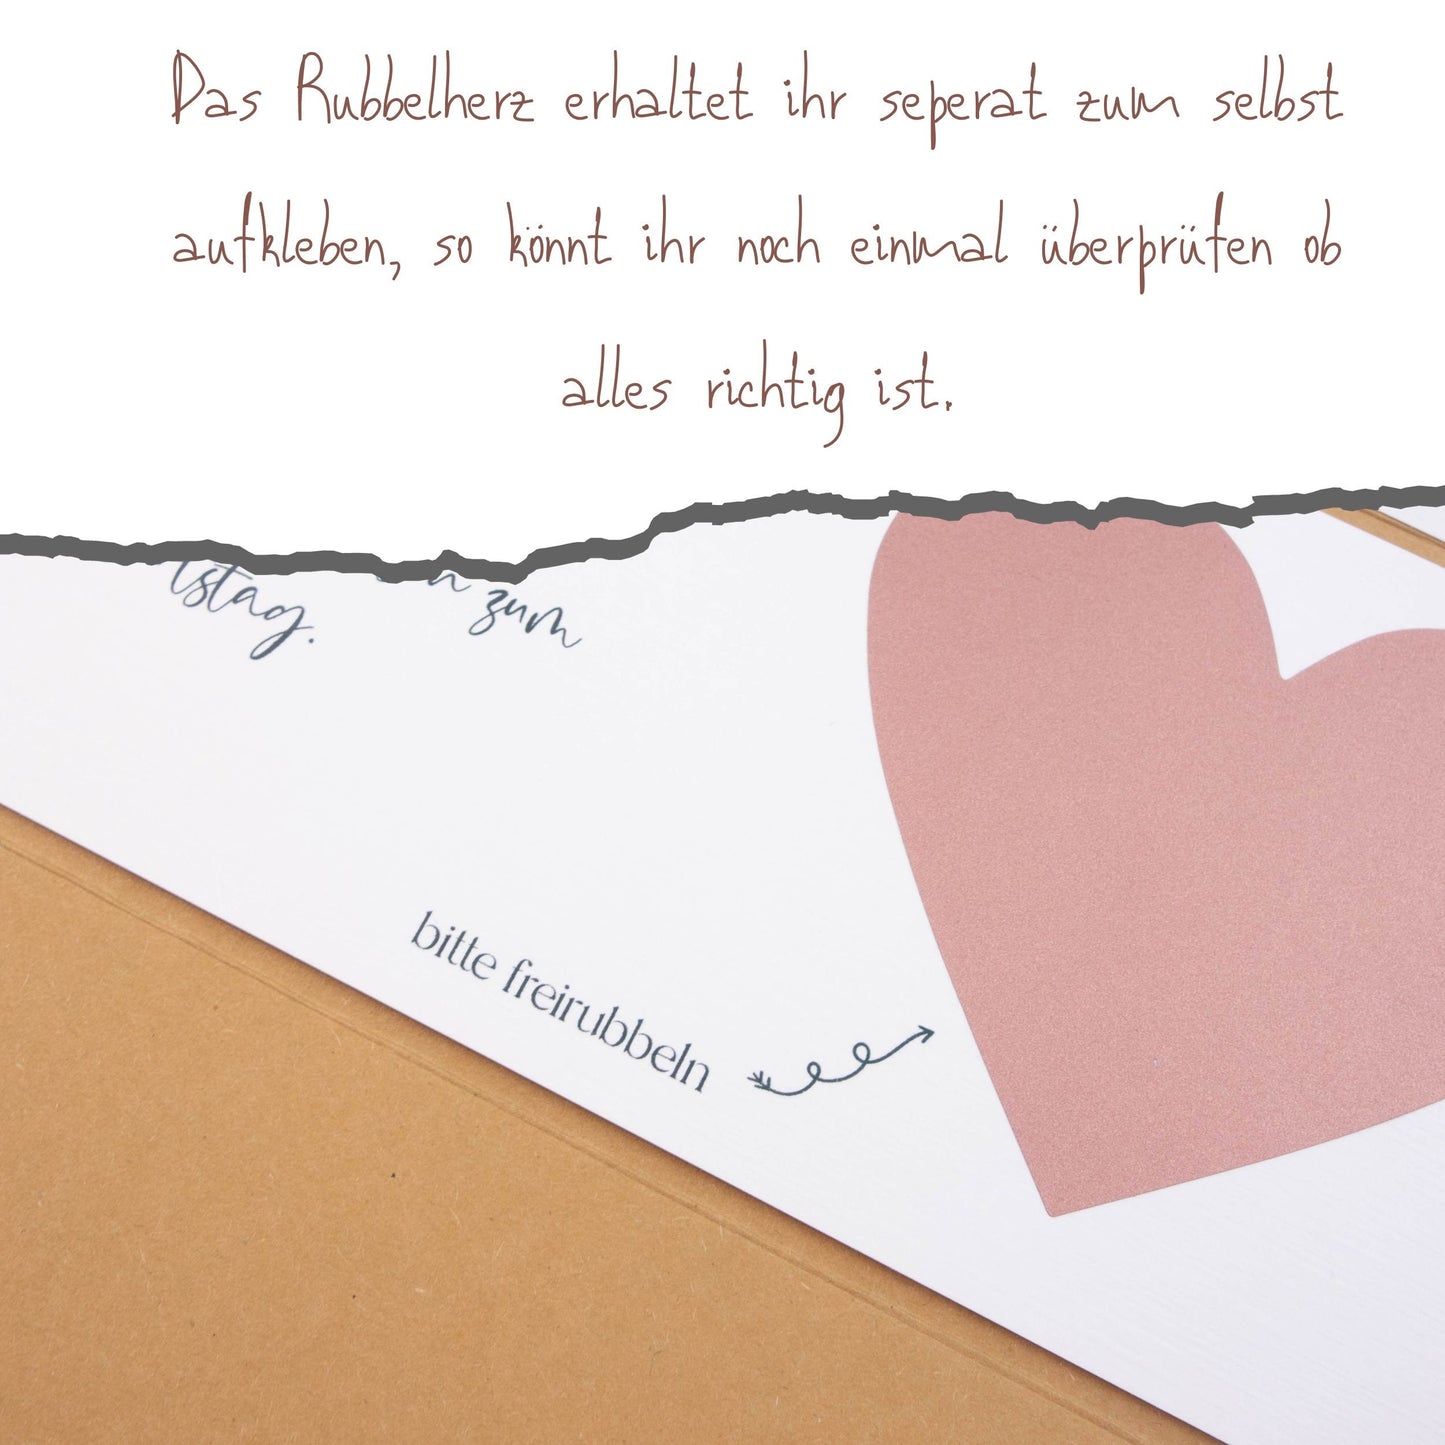 Das Rubbelherz erhaltet ihr seperat zum selbst
aufkleben, so könnt ihr noch einmal überprüfen ob
alles richtig ist.
zum
bitte freirubbeln